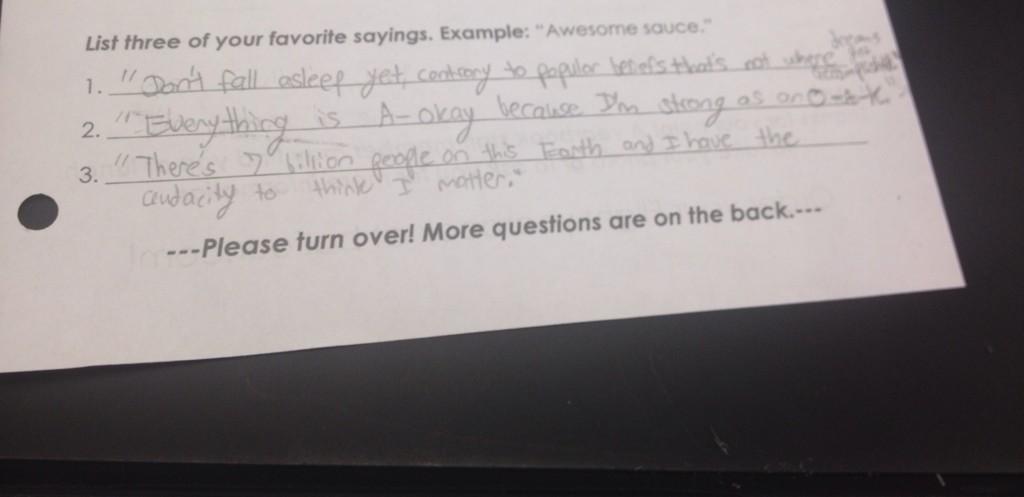 List three of your favorite sayings. Example: "Awesome sauce."
dreams
1. "Don't fall asleep yet, contrary to popular beliefs that's not where
2. "Everything is A-okay because I'm strong as an O-a-k"
3. "There's 7 billion people on this Earth and I have the
audacity to think I matter."
---Please turn over! More questions are on the back.---